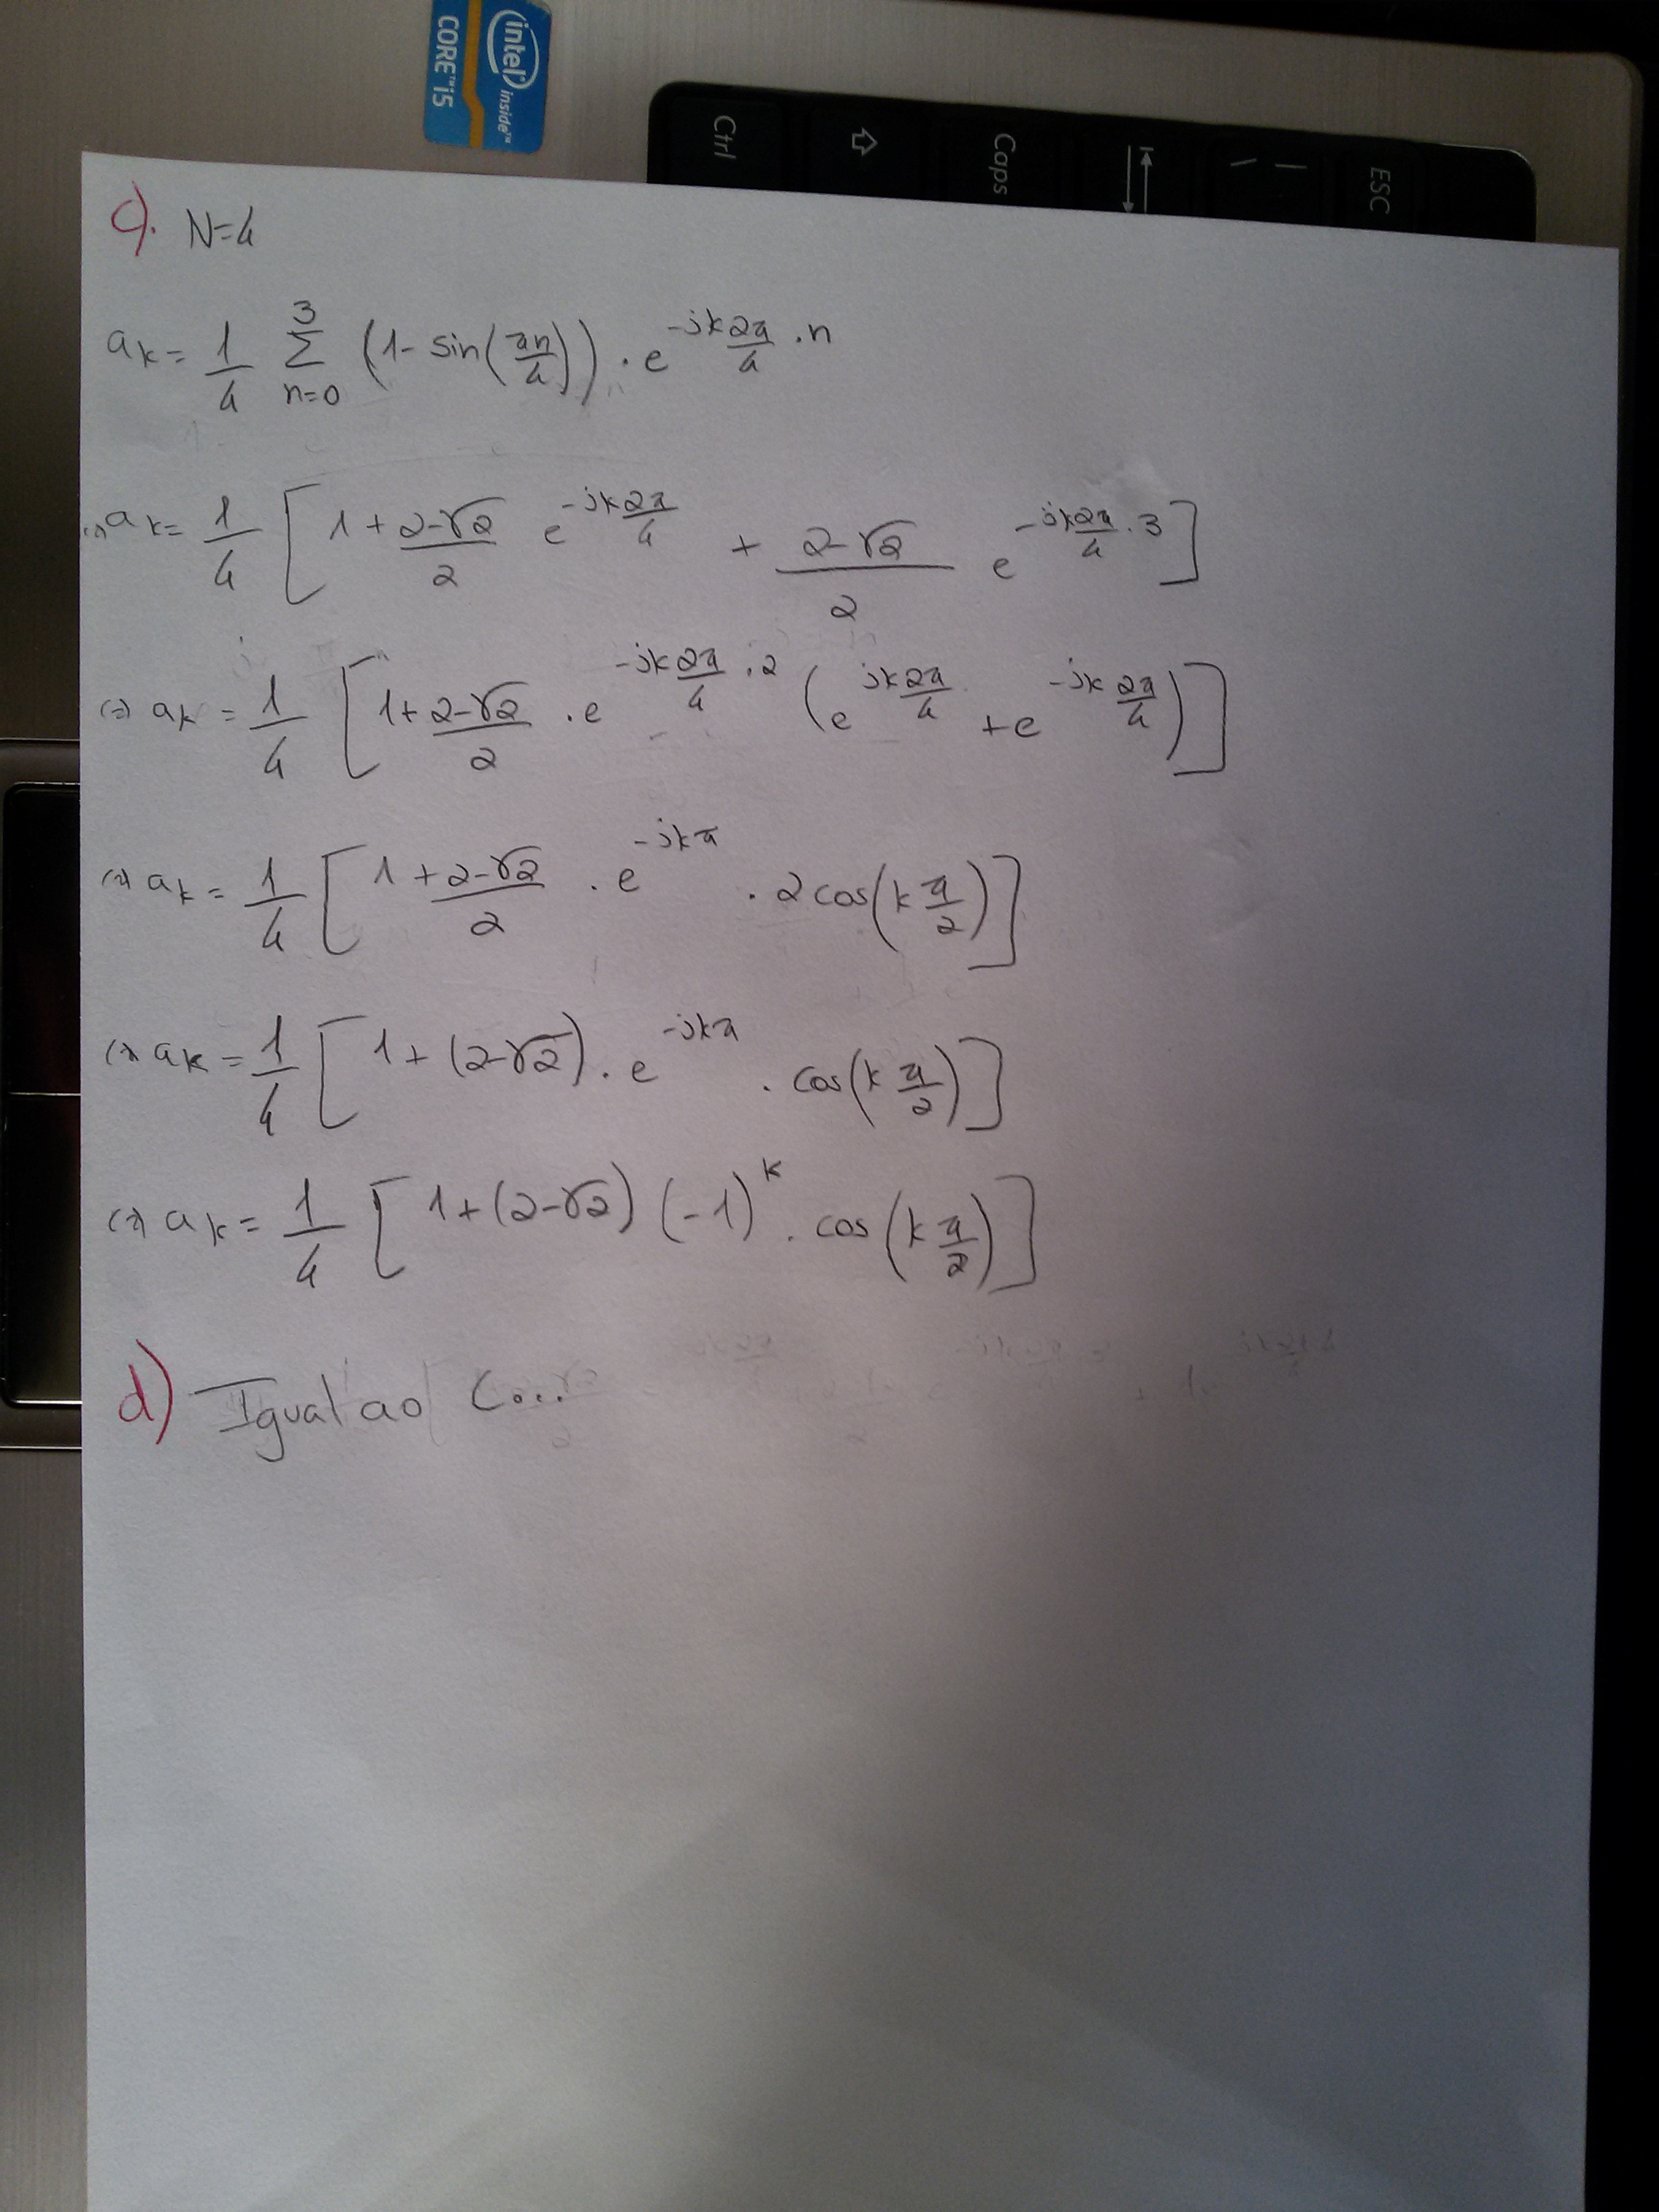 intel inside™
CORE™ i5
Ctrl
Caps
ESC
c). N=4
a_k = 1/4 Σ_{n=0}^{3} (1 - sin(πn/4)) · e^{-jk 2π/4 · n}
(=) a_k = 1/4 [1 + (2-√2)/2 e^{-jk 2π/4} + (2-√2)/2 e^{-jk 2π/4 · 3}]
(=) a_k = 1/4 [1 + (2-√2)/2 · e^{-jk 2π/4 · 2} (e^{jk 2π/4} + e^{-jk 2π/4})]
(=) a_k = 1/4 [1 + (2-√2)/2 · e^{-jkπ} · 2cos(k π/2)]
(=) a_k = 1/4 [1 + (2-√2) · e^{-jkπ} · cos(k π/2)]
(=) a_k = 1/4 [1 + (2-√2) (-1)^k · cos(k π/2)]
d) Igual ao C...